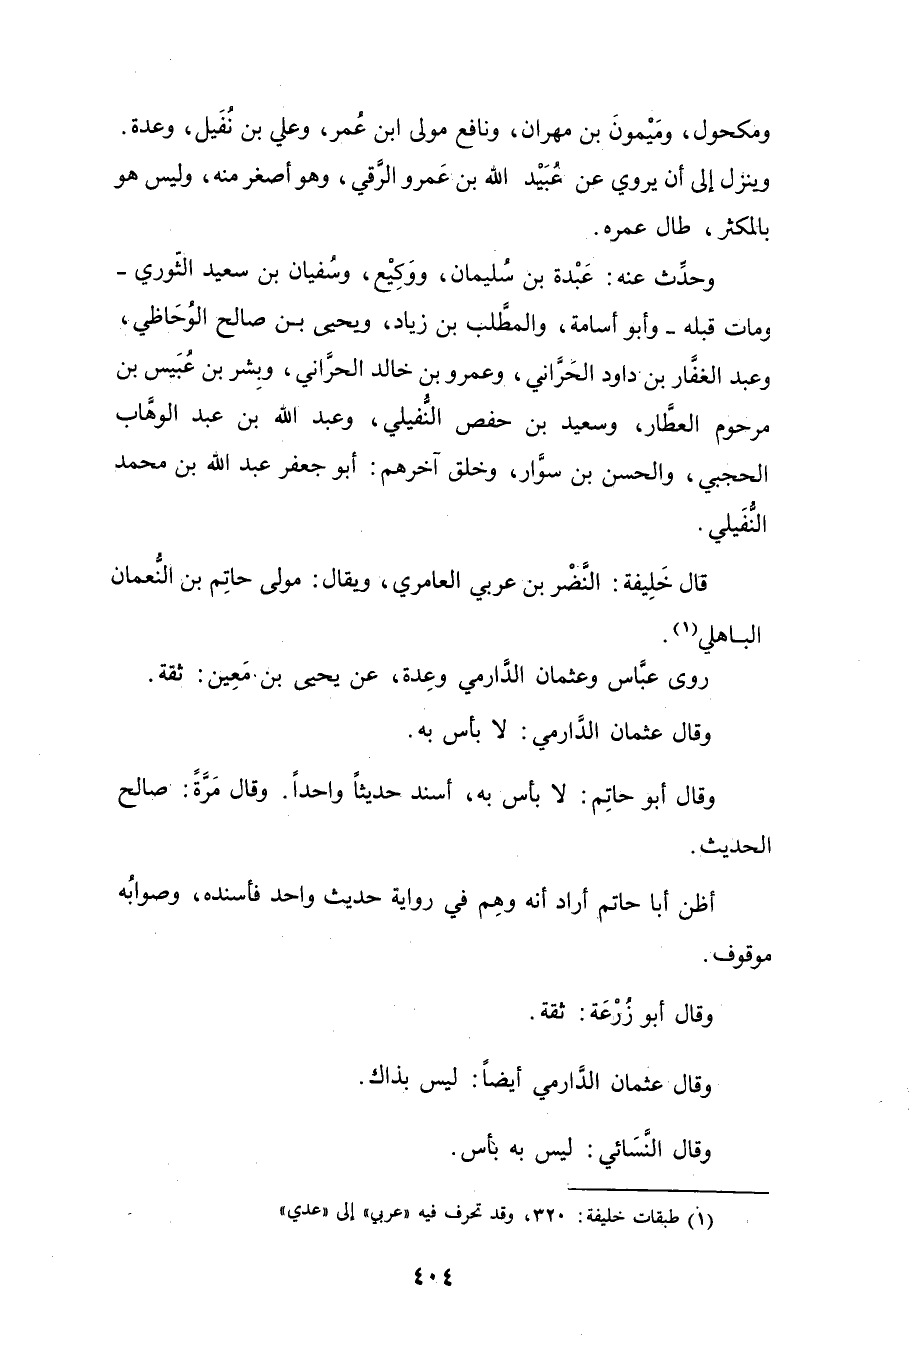 ومكحول، ومَيْمونَ بن مهران، ونافع مولى ابن عُمر، وعلي بن نُفَيل، وعدة.
وينزل إلى أن يروي عن عُبَيْد الله بن عَمرو الرَّقي، وهو أصغر منه، وليس هو
بالمكثر، طال عمره.
وحدَّث عنه: عَبْدة بن سُليمان، ووَكِيْع، وسُفيان بن سعيد الثّوري ـ
ومات قبله ـ وأبو أسامة، والمطَّلب بن زياد، ويحيى بن صالح الوُحَاظي،
وعبد الغفَّار بن داود الحَرَّاني، وعمرو بن خالد الحرَّاني، وبِشر بن عُبَيس بن
مرحوم العطَّار، وسعيد بن حفص النُّفيلي، وعبد الله بن عبد الوهَّاب
الحجبي، والحسن بن سوَّار، وخلق آخرهم: أبو جعفر عبد الله بن محمد
النُّفَيلي.
قال خَلِيفة: النَّضْر بن عربي العامري، ويقال: مولى حاتِم بن النُّعمان
الباهلي(١).
روى عبَّاس وعثمان الدَّارمي وعِدة، عن يحيى بن مَعِين: ثقة.
وقال عثمان الدَّارمي: لا بأس به.
وقال أبو حاتِم: لا بأس به، أسند حديثاً واحداً. وقال مَرَّةً: صالح
الحديث.
أظن أبا حاتم أراد أنه وهِم في رواية حديث واحد فأسنده، وصوابُه
موقوف.
وقال أبو زُرْعَة: ثقة.
وقال عثمان الدَّارمي أيضاً: ليس بذاك.
وقال النَّسَائي: ليس به بأس.
(١) طبقات خليفة: ٣٢٠، وقد تحرف فيه «عربي» إلى «عدي»
٤٠٤